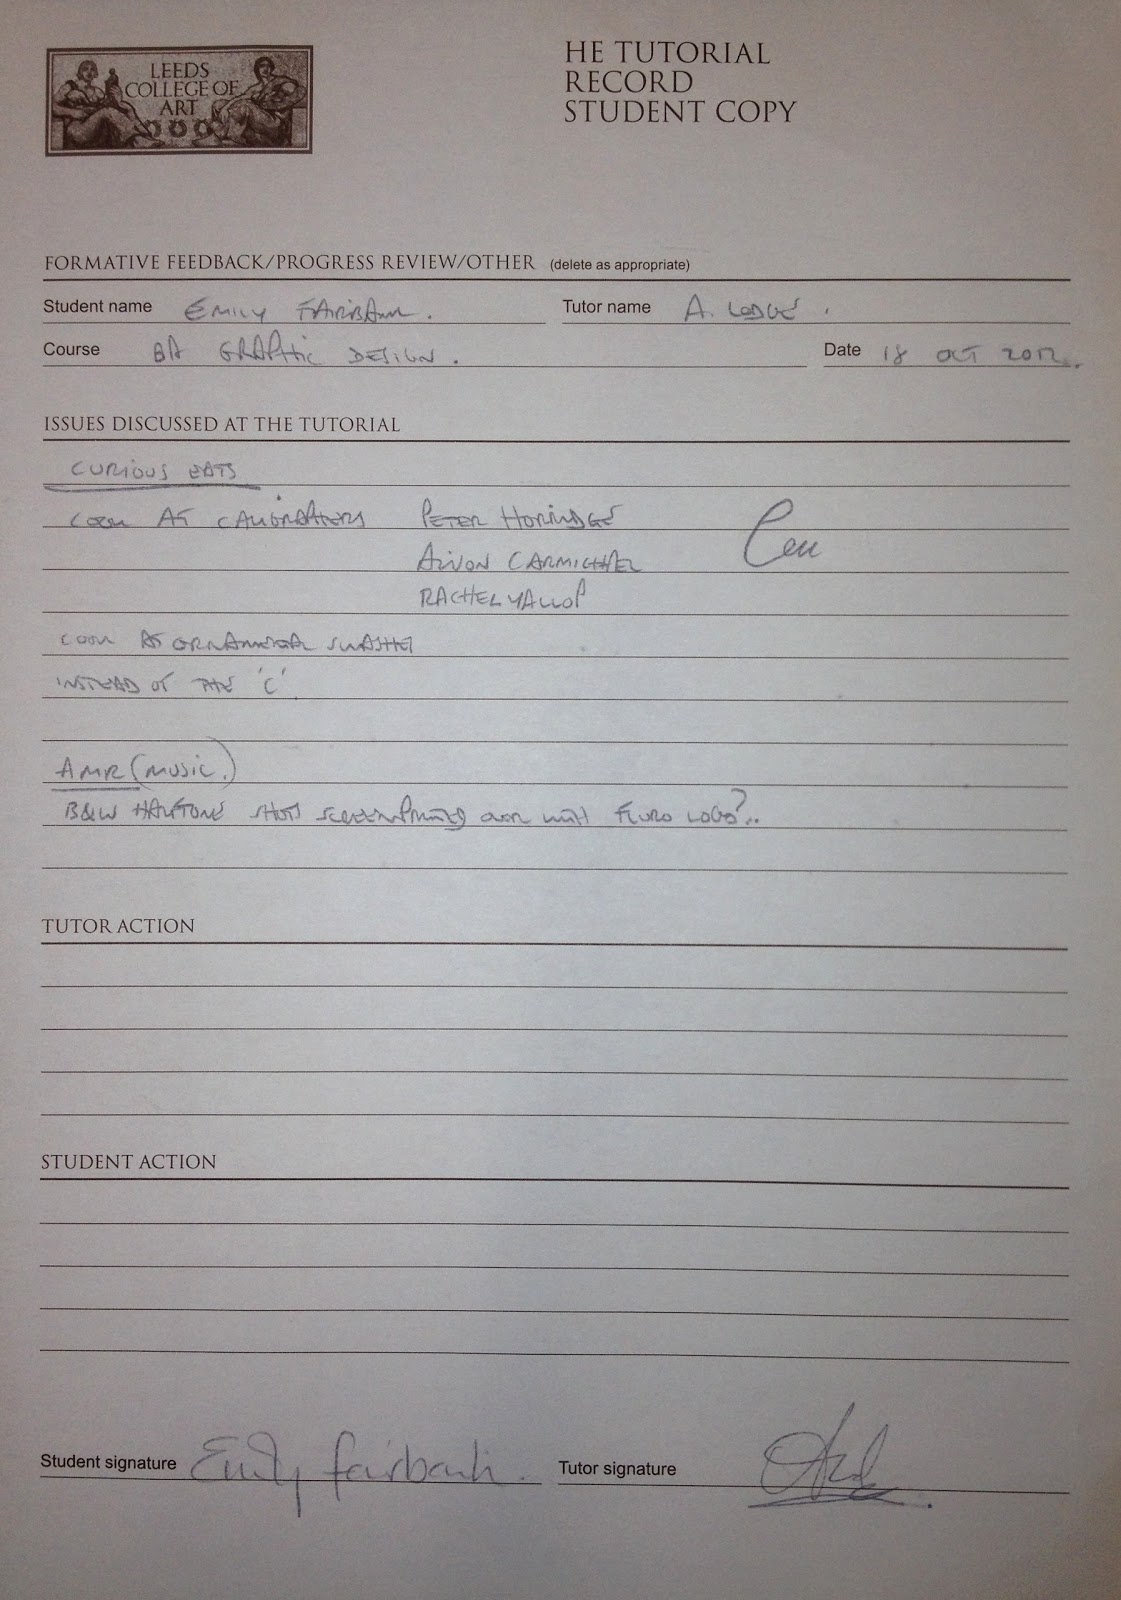 LEEDS
COLLEGE OF
ART
HE TUTORIAL
RECORD
STUDENT COPY
FORMATIVE FEEDBACK/PROGRESS REVIEW/OTHER (delete as appropriate)
Student name EMILY FAIRBANK. Tutor name A. LODGE.
Course BA GRAPHIC DESIGN. Date 18 OCT 2012.
ISSUES DISCUSSED AT THE TUTORIAL
CURIOUS EATS
LOOK AT CALIGRAPHERS PETER HORRIDGE
CARMICHAEL
RACHEL YALLOP
LOOK AT ORNAMENTAL SWASHES
INSTEAD OF THE 'C'.
AMR (MUSIC.)
B&W HALFTONE SHOTS SCREENPRINTING OVER WITH FLURO LOGO?..
TUTOR ACTION
STUDENT ACTION
Student signature Emily Fairbank. Tutor signature